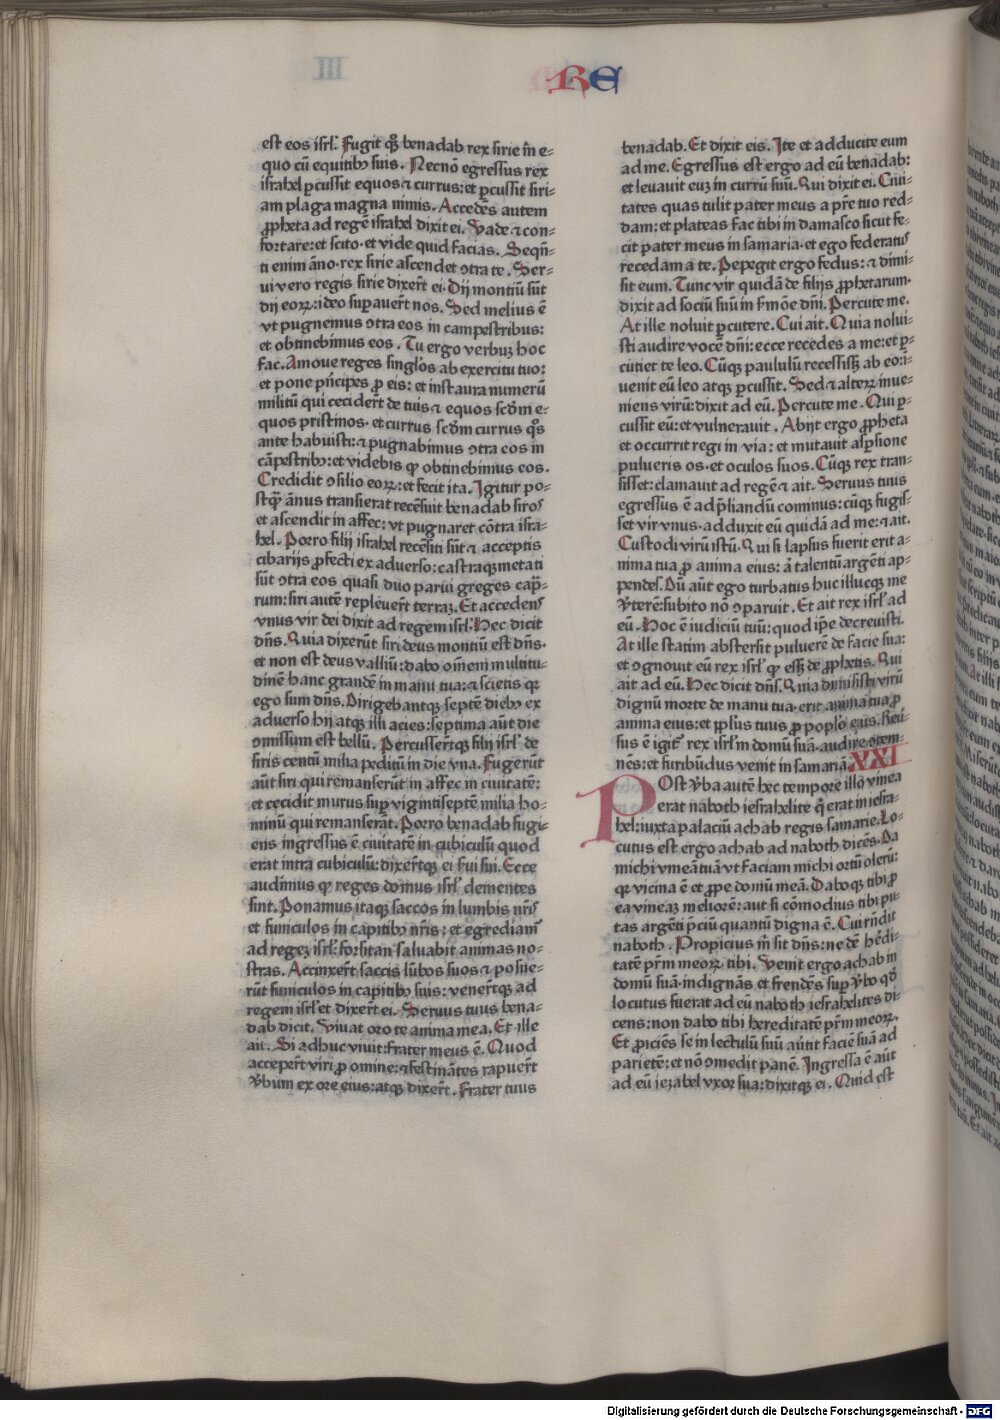 RE
est eos isrl᷑. Fugit q̄ꝫ benadab rex sirie in e-
quo cū equitibꝫ suis. Necnō egressus rex
israhel ꝑcussit equos ⁊ currus: et ꝑcussit siri-
am plaga magna nimis. Accedēs autem
ꝓpheta ad regē israhel dixit ei. Vade ⁊ con-
fortare: et scito· et vide quid facias. Seqn̄-
ti enim āno· rex sirie ascendet ↄtra te. Ser-
ui vero regis sirie dixert̄ ei. Dij montiū sūt
dij eoꝝ: ideo suꝑauert̄ nos. Sed melius ē
vt pugnemus ↄtra eos in campestribus:
et obtinebimus eos. Tu ergo verbuꝫ hoc
fac. Amoue reges singl̄os ab exercitu tuo:
et pone pn̄cipes ꝓ eis: et instaura numerū
militū qui cecidert̄ de tuis ⁊ equos scd̄m e-
quos pristinos· et currus scd̄m currus qͦs
ante habuisti: ⁊ pugnabimus ↄtra eos in
cāpestribꝫ: et videbis qꝫ obtinebimus eos.
Credidit ↄsilio eoꝝ: et fecit ita. Igitur po-
stqͣ̄ annus transierat recēsuit benadab siros
et ascendit in affec: vt pugnaret cōtra isra-
hel. Porro filij israhel recēsiti sūt ⁊ acceptis
cibarijs ꝓfecti ex aduerso: castraqꝫ metati
sūt ↄtra eos quasi duo parui greges capͣ-
rum: siri autē repleuert̄ terraꝫ. Et accedens
vnus vir dei dixit ad regem isrl᷑. Hec dicit
dn̄s. Quia dixerūt siri deus montiū est dn̄s·
et non est deus valliū: dabo om̄em multitu-
dinē hanc grandē in manu tua: ⁊ scietis qꝫ
ego sum dn̄s. Dirigebantqꝫ septē diebꝫ ex
aduerso hij atqꝫ illi acies: septima aūt die
ↄmissum est bellū. Percussert̄qꝫ filij isrl᷑ de
siris centū milia peditū in die vna. Fugerūt
aūt siri qui remanserūt in affec in ciuitatē:
et cecidit murus suꝑ vigintiseptē milia ho-
minū qui remanserāt. Porro benadab fugi-
ens ingressus ē ciuitatē in cubiculū quod
erat intra cubiculū: dixert̄qꝫ ei ẜui sui. Ecce
audiuimus qꝫ reges domus isrl᷑ clementes
sint. Ponamus itaqꝫ saccos in lumbis nr̄is
et funiculos in capitibꝫ nr̄is: et egrediamᷣ
ad regeꝫ isrl᷑: forsitan saluabit animas no-
stras. Accinxert̄ saccis lūbos suos ⁊ posue-
rūt funiculos in capitibꝫ suis: venert̄qꝫ ad
regem isrl᷑ et dixert̄ ei. Seruus tuus bena-
dab dicit. Viuat oro te anima mea. Et ille
ait. Si adhuc viuit: frater meus ē. Quod
accepert̄ viri ꝓ omine: ⁊ festināntes rapuert̄
v̄bum ex ore eius: atqꝫ dixert̄. Frater tuus
benadab. Et dixit eis. Ite et adducite eum
ad me. Egressus est ergo ad eū benadab:
et leuauit euꝫ in currū suū. Qui dixit ei. Ciui-
tates quas tulit pater meus a pr̄e tuo red-
dam: et plateas fac tibi in damasco sicut fe-
cit pater meus in samaria· et ego federatus
recedam a te. Pepegit ergo fedus: ⁊ dimi-
sit eum. Tunc vir quidā de filijs ꝓphetarum·
dixit ad sociū suū in ẜmōe dn̄i. Percute me.
At ille noluit ꝑcutere. Cui ait. Quia nolui-
sti audire vocē dn̄i: ecce recedes a me: et ꝑ-
cutiet te leo. Cūqꝫ paululū recessissꝫ ab eo: ī-
uenit eū leo atqꝫ ꝑcussit. Sed ⁊ alteꝝ inue-
niens virū: dixit ad eū. Percute me. Qui ꝑ-
cussit eū: et vulnerauit. Abijt ergo ꝓpheta
et occurrit regi in via: et mutauit aspersione
pulueris os· et oculos suos. Cūqꝫ rex tran-
sisset: clamauit ad regē ⁊ ait. Seruus tuus
egressus ē ad p̄liandū cominus: cūqꝫ fugis-
set vir vnus· adduxit eū quidā ad me: ⁊ ait.
Custodi virū istū. Qui si lapsus fuerit erit a-
nima tua ꝓ anima eius: aͭ talentū argēti ap-
pendes. Dū aūt ego turbatus huc illucqꝫ me
v̄terē: subito nō ↄparuit. Et ait rex isrl᷑ ad
eū. Hoc ē iudiciū tuū: quod ip̄e decreuisti.
At ille statim abstersit puluerē de facie sua:
et ↄgnouit eū rex isrl᷑ qꝫ essꝫ de ꝓphetis. Qui
ait ad eū. Hec dicit dn̄s. Quia dimisisti virū
dignū morte de manu tua· erit anima tua ꝓ
anima eius: et ppl̄us tuus ꝓ poplo eius. Reuͤ-
sus ē igitᷣ rex isrl᷑ in domū suā· audire ↄtem-
nēs: et furibūdus venit in samariā. XXI
POst v̄ba autē hec tempore illo vinea
erat naboth iesrahelite q̄ erat in iesra-
hel: iuxta palaciū achab regis samarie. Lo-
cutus est ergo achab ad naboth dicēs. Da
michi vineā tuā vt faciam michi ortū oleꝝ:
qꝫ vicina ē et ꝓpe domū meā. Daboqꝫ tibi ꝓ
ea vineaꝫ meliorē: aut si cōmodius tibi pu-
tas argēti p̄ciū quantū digna ē. Cui rn̄dit
naboth. Propicius m̄ sit dn̄s: ne dē hēdi-
tatē prm̄ meoꝝ tibi. Venit ergo achab in
domū suā· indignās et frendēs suꝑ v̄bo qd̄
locutus fuerat ad eū naboth iesrahelites di-
cens: non dabo tibi hereditatē prm̄ meoꝝ.
Et ꝓiciēs se in lectulū suū aūtit faciē suā ad
parietē: et nō ↄmedit panē. Ingressa ē aūt
ad eū iezabel vxor sua: dixitqꝫ ei. Quid est
Digitalisierung gefördert durch die Deutsche Forschungsgemeinschaft - DFG